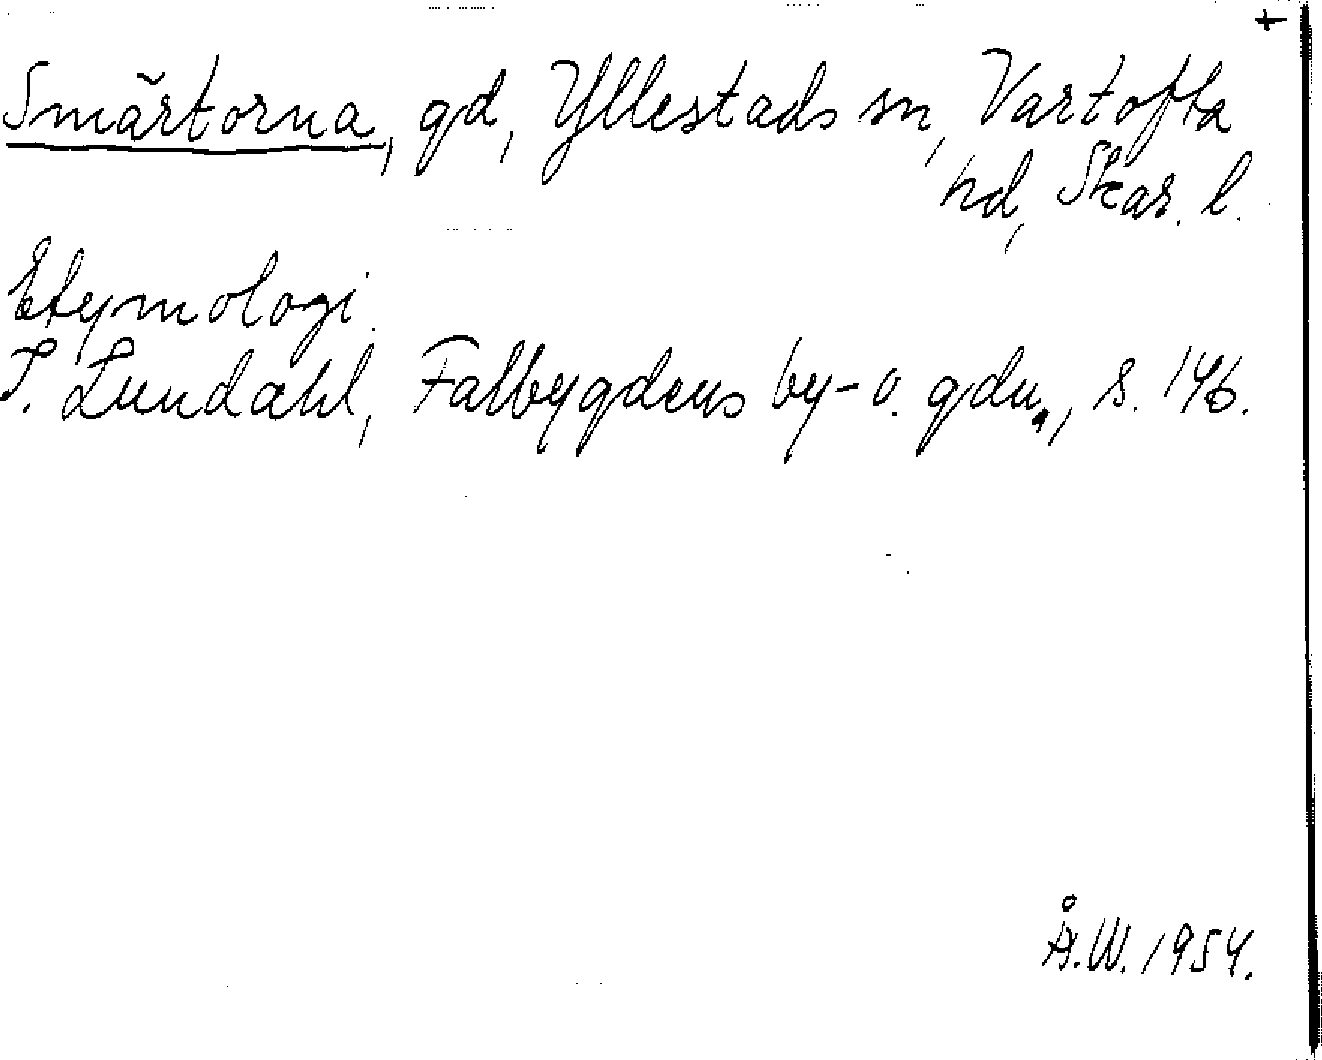 +
Smärtorna, gd, Yllestads sn, Vartofta
hd, Skar. l.
Etymologi.
I. Lundahl, Falbygdens by- o. gdn., s. 146.
Å.W. 1954.